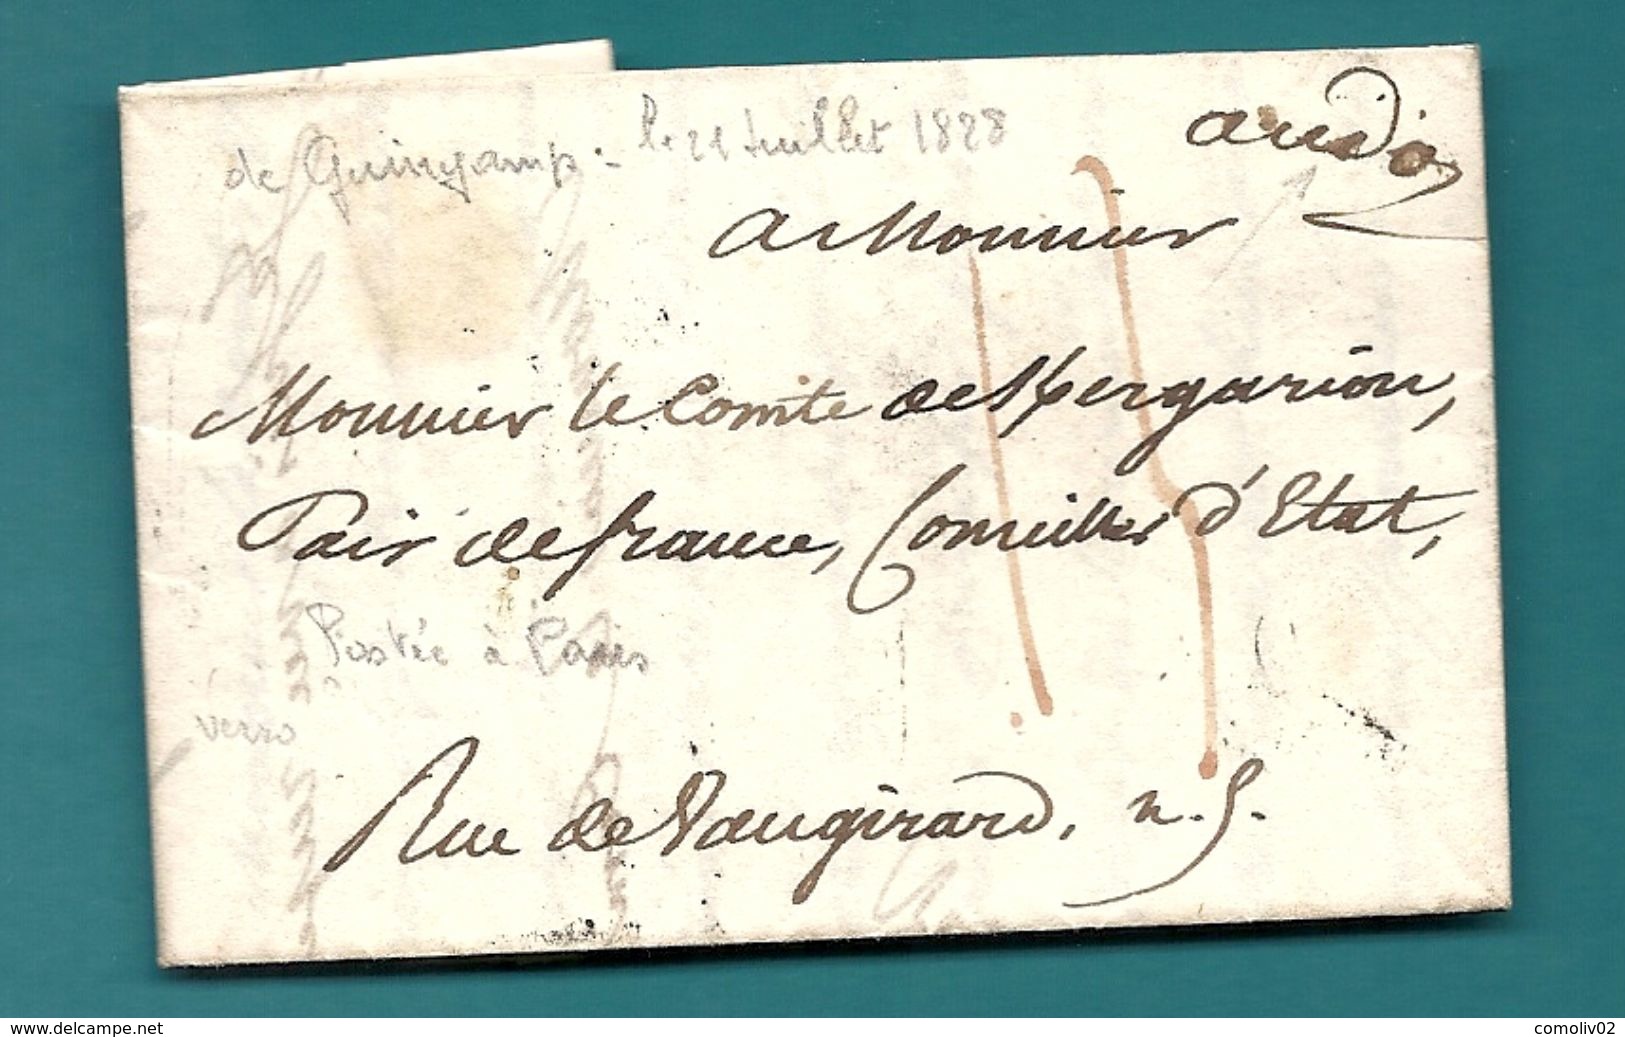 de Guingamp - le 21 Juillet 1828
A Monsieur
Monsieur le Comte de Kergariou,
Pair de france, Conseiller d'Etat,
Postée à Paris
verso
Rue de Vaugirard, n. 9.
www.delcampe.net
comoliv02